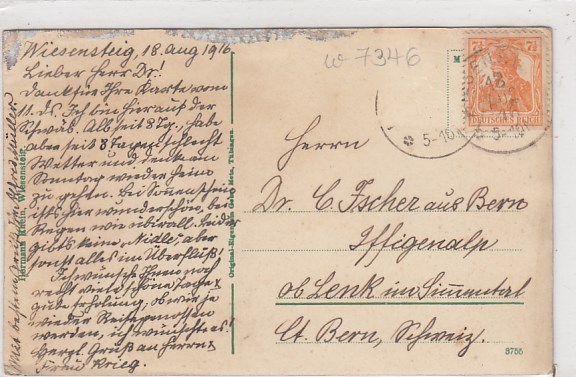 Wiesensteig, 18. Aug 1916.
Lieber Herr Dr.!
Dank für Ihre Karte vom
11. ds. Ich bin hier auf der
Schwäb. Alb seit 8 Tg., habe
aber seit 8 Tagen schlecht
Wetter und denke am
Sonntag wieder heim
zu gehen. Bei Sonnenschein
ists hier wunderschön, bei
Regen wie überall. Leider
gibts keine „Nidle“, aber
sonst alles im Überfluß!
Ich wünsche Ihnen noch
recht viel schöne Tage &
gute Erholung, ob wir je
wieder Reisegenossen
werden, ich wünschte es!
Herzl. Gruß an Herrn &
Frau Krieg.
Mit bestem Gruß Ihr
Hermann Rhein, Wiesensteig.
Original-Eigentum Gebr. Metz, Tübingen.
w 7346
M
7½ 7½
DEUTSCHES REICH
5-10
5-10
Herrn
Dr. C. Tscher aus Bern
Iffigenalp
ob Lenk im Simmental
Ct. Bern, Schweiz.
3755